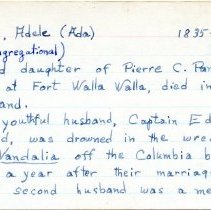 , Adele (Ada) 1835-
gregational)
d daughter of Pierre C. Pa
at Fort Walla Walla, died in
and.
youthful husband, Captain Ed
d, was drowned in the wre
Vandalia off the Columbia b
a year after their marria
second husband was a me